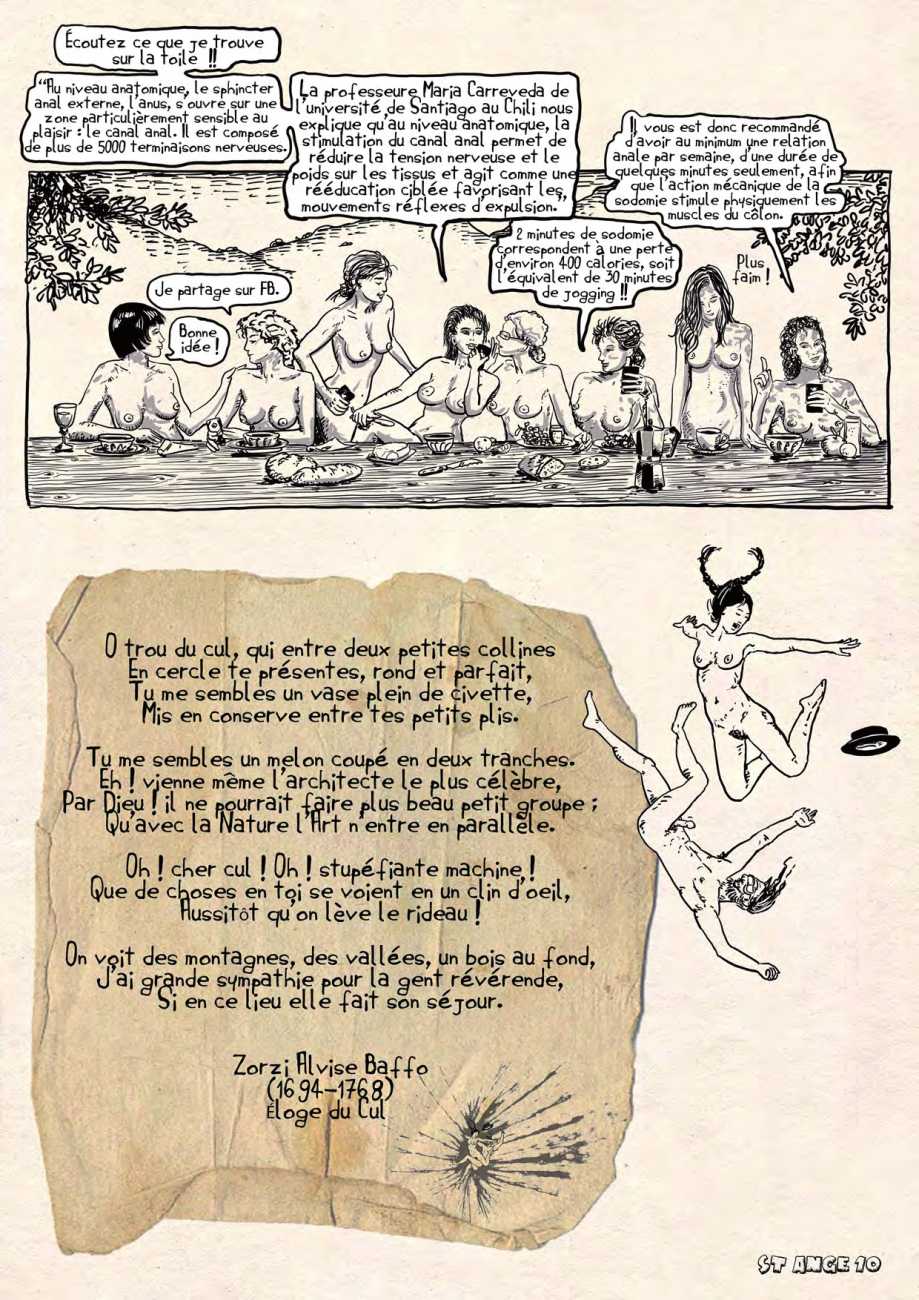 Écoutez ce que je trouve
sur la toile !!
"Au niveau anatomique, le sphincter
anal externe, l'anus, s'ouvre sur une
zone particulièrement sensible au
plaisir : le canal anal. Il est composé
de plus de 5000 terminaisons nerveuses.
La professeure Maria Carreveda de
l'université de Santiago au Chili nous
explique qu'au niveau anatomique, la
stimulation du canal anal permet de
réduire la tension nerveuse et le
poids sur les tissus et agit comme une
rééducation ciblée favorisant les
mouvements réflexes d'expulsion."
Il vous est donc recommandé
d'avoir au minimum une relation
anale par semaine, d'une durée de
quelques minutes seulement, afin
que l'action mécanique de la
sodomie stimule physiquement les
muscles du côlon.
2 minutes de sodomie
correspondent à une perte
d'environ 400 calories, soit
l'équivalent de 30 minutes
de jogging !!
Plus
faim !
Je partage sur FB.
Bonne
idée !
O trou du cul, qui entre deux petites collines
En cercle te présentes, rond et parfait,
Tu me sembles un vase plein de civette,
Mis en conserve entre tes petits plis.
Tu me sembles un melon coupé en deux tranches.
Eh ! vienne même l'architecte le plus célèbre,
Par Dieu ! il ne pourrait faire plus beau petit groupe ;
Qu'avec la Nature l'Art n'entre en parallèle.
Oh ! cher cul ! Oh ! stupéfiante machine !
Que de choses en toi se voient en un clin d'oeil,
Aussitôt qu'on lève le rideau !
On voit des montagnes, des vallées, un bois au fond,
J'ai grande sympathie pour la gent révérende,
Si en ce lieu elle fait son séjour.
Zorzi Alvise Baffo
(1694-1768)
Éloge du Cul
ST ANGE 10